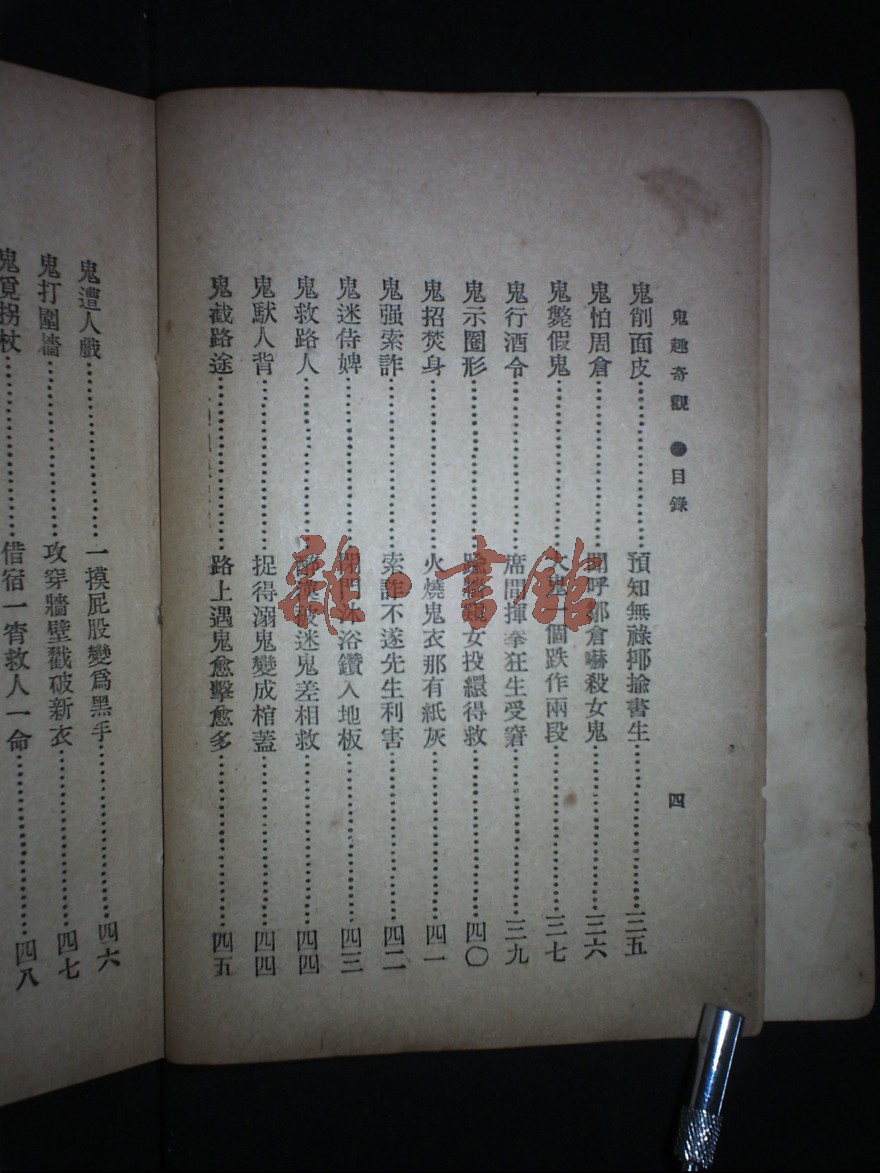 鬼趣奇觀 ●目錄 四
鬼削面皮……預知無祿揶揄書生……三五
鬼怕周倉……聞呼倉嚇殺女鬼……三六
鬼斃假鬼……鬼一個跌作兩段……三七
鬼行酒令……席間揮拳狂生受窘……三九
鬼示圈形……女投繯得救……四〇
鬼招焚身……火燒鬼衣那有紙灰……四一
鬼强索詐……索詐不遂先生利害……四二
鬼迷侍婢……閉門沐浴鑽入地板……四三
鬼救路人……被迷鬼差相救……四四
鬼馱人背……捉得溺鬼變成棺蓋……四四
鬼截路途……路上遇鬼愈擊愈多……四五
鬼遭人戲……一摸屁股變爲黑手……四六
鬼打圍牆……攻穿牆壁戳破新衣……四七
鬼覓拐杖……借宿一宵救人一命……四八
雜·書館